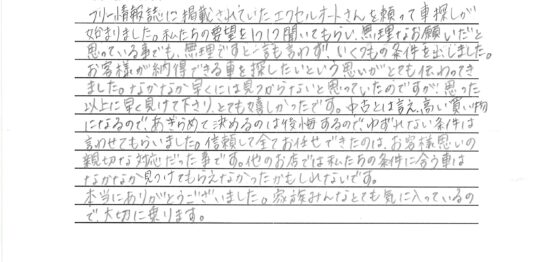 フリー情報誌に掲載されていたエクセルオートさんを頼って車探しが
始まりました。私たちの希望を1つ1つ聞いてもらい、無理なお願いだと
思っている事でも、無理ですと一言も言わず、いくつもの条件を出しました。
お客様が納得できる車を探したいという思いがとても伝わってき
ました。なかなか早くには見つからないと思っていたのですが、思った
以上に早く見けて下さり、とても嬉しかったです。中古とは言え、高い買い物
になるので、あきらめて決めるのは後悔するので、ゆずれない条件は
言わせてもらいました。信頼して全てお任せできたのは、お客様思いの
親切な対応だった事です。他のお店では私たちの条件に合う車は
なかなか見つけてもらえなかったかもしれないです。
本当にありがとうございました。家族みんなとても気に入っているの
で、大切に乗ります。